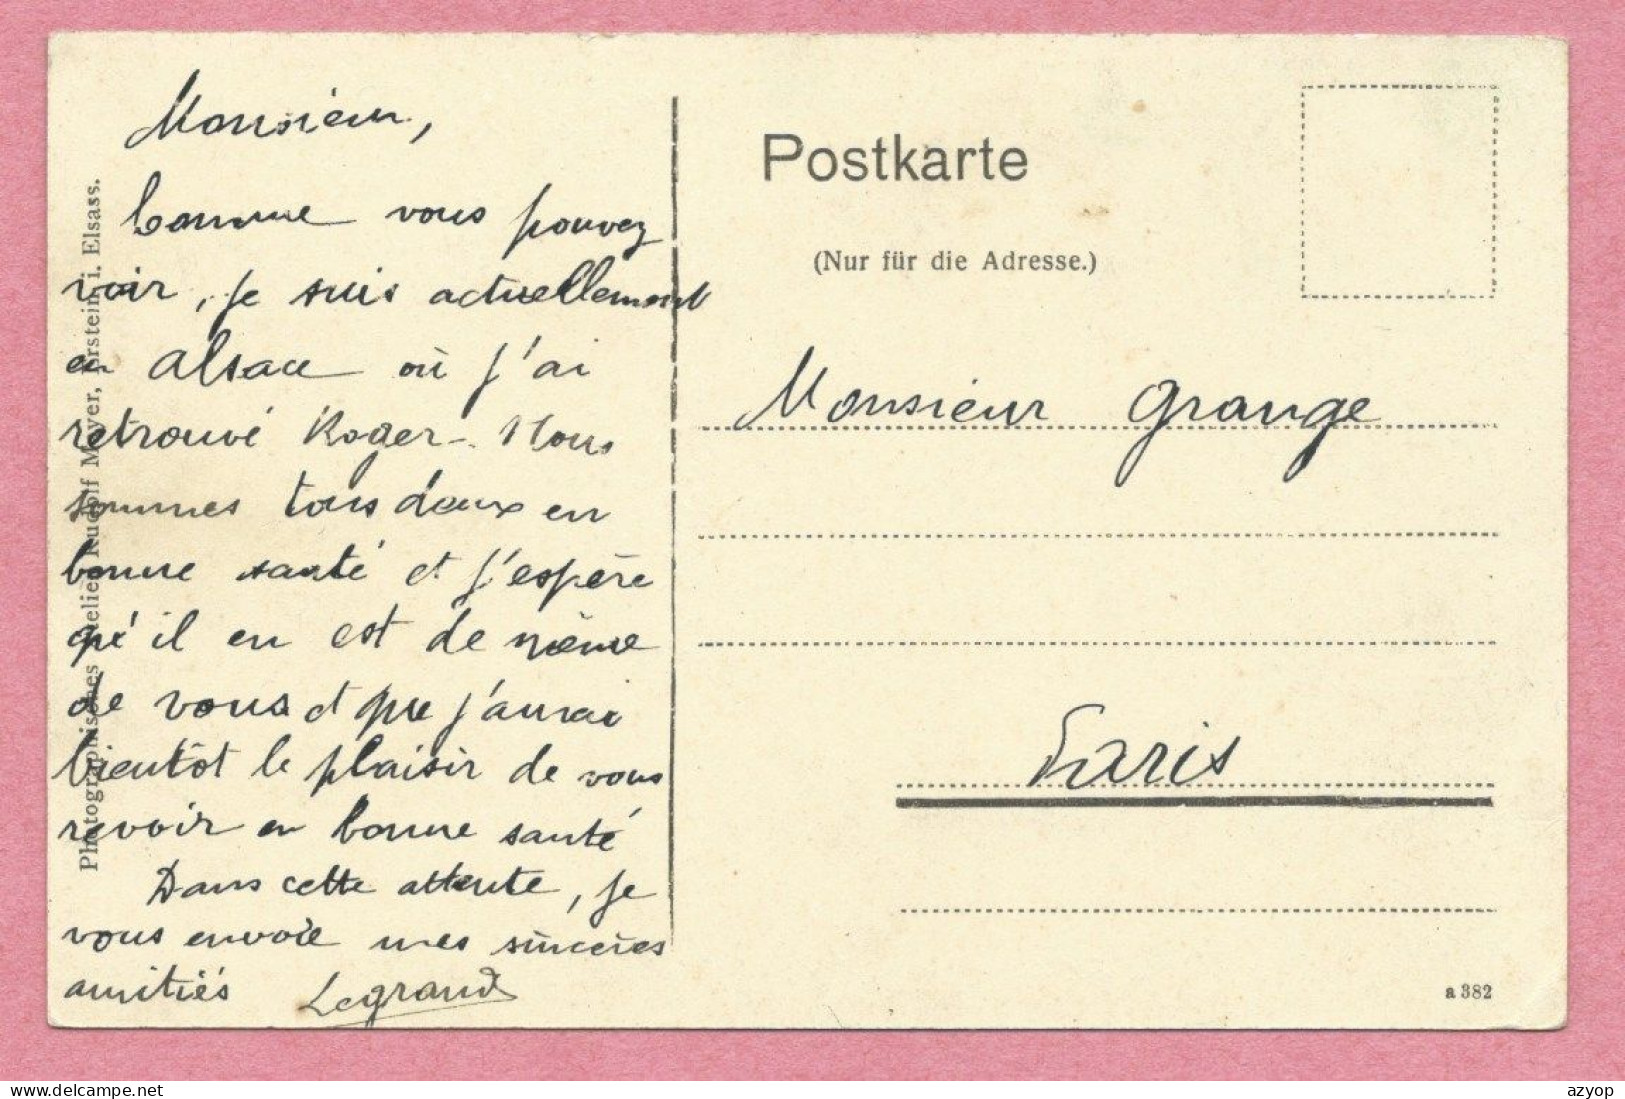 Monsieur,
Comme vous pouvez
voir, je suis actuellement
en Alsace où j'ai
retrouvé Roger - Nous
sommes tous deux en
bonne santé et j'espère
qu'il en est de même
de vous et que j'aurai
bientôt le plaisir de vous
revoir en bonne santé
Dans cette attente, je
vous envoie mes sincères
amitiés Legrand
Photographisches Atelier Rudolf Meyer, Erstein i. Elsass.
Postkarte
(Nur für die Adresse.)
Monsieur Grange
Paris
a 382
delcampe.net
azyop